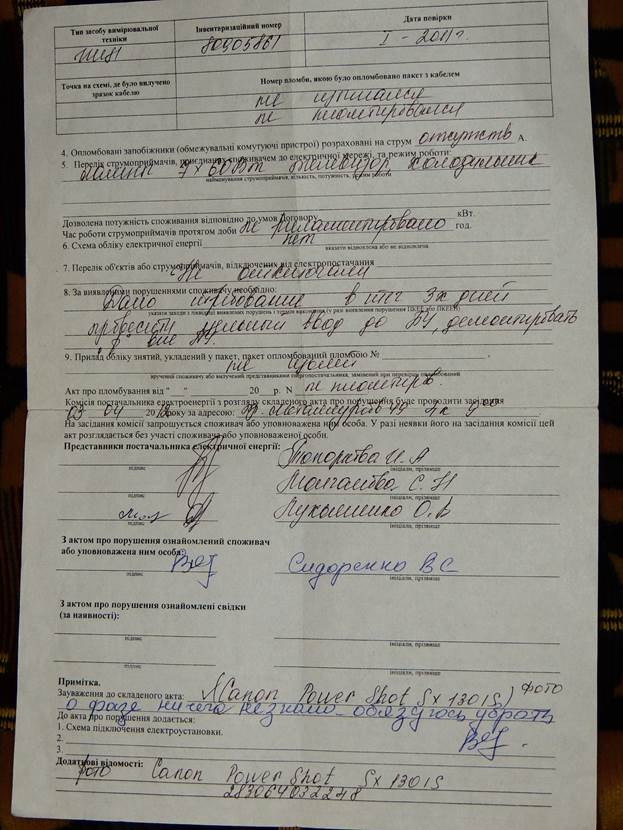 Тип засобу вимірювальної техніки
Інвентаризаційний номер
Дата повірки
80905861
I - 2011г.
Точка на схемі, де було вилучено зразок кабелю
Номер пломби, якою було опломбовано пакет з кабелем
не изымался
не пломбировался
4. Опломбовані запобіжники (обмежувальні комутуючі пристрої) розраховані на струм отсутств А.
5. Перелік струмоприймачів, приєднаних споживачем до електричної мережі, та режим роботи:
лампы 7х60Вт телевизор холодильник
найменування струмоприймача, кількість, потужність, режим роботи
Дозволена потужність споживання відповідно до умов договору кВт.
Час роботи струмоприймачів протягом доби не регламентировано год.
6. Схема обліку електричної енергії нет
вказати відновлена або не відновлена
7. Перелік об'єктів або струмоприймачів, відключених від електропостачання
Не отключали
8. За виявленими порушеннями споживачу необхідно:
Дано требование в теч 3х дней
цельный ввод до ПУ, демонтировать
9. Прилад обліку знятий, укладений у пакет, пакет опломбований пломбою №
не изъят
Акт про пломбування від " " 20 р. N не пломбиров.
Комісія постачальника електроенергії з розгляду складеного акта про порушення буде проводити засідання
03 04 20 року за адресою: Металлургов
На засідання комісії запрошується споживач або уповноважена ним особа. У разі неявки його на засідання комісії цей
акт розглядається без участі споживача або уповноваженої особи.
Представники постачальника електричної енергії:
підпис
ініціали, прізвище
С. Н
підпис
ініціали, прізвище
Лукашенко О. В
підпис
ініціали, прізвище
З актом про порушення ознайомлений споживач
або уповноважена ним особа:
Сидоренко ВС
підпис
ініціали, прізвище
З актом про порушення ознайомлені свідки
(за наявності):
підпис
ініціали, прізвище
ініціали, прізвище
Примітка.
Зауваження до складеного акта: (Canon Power Shot Sx 130 IS) фото
о фазе ничего не знаю обязуюсь убрать
До акта про порушення додається:
1. Схема підключення електроустановки.
2.
3.
Додаткові відомості:
фото Canon Power Shot Sx 130 IS
283064032248